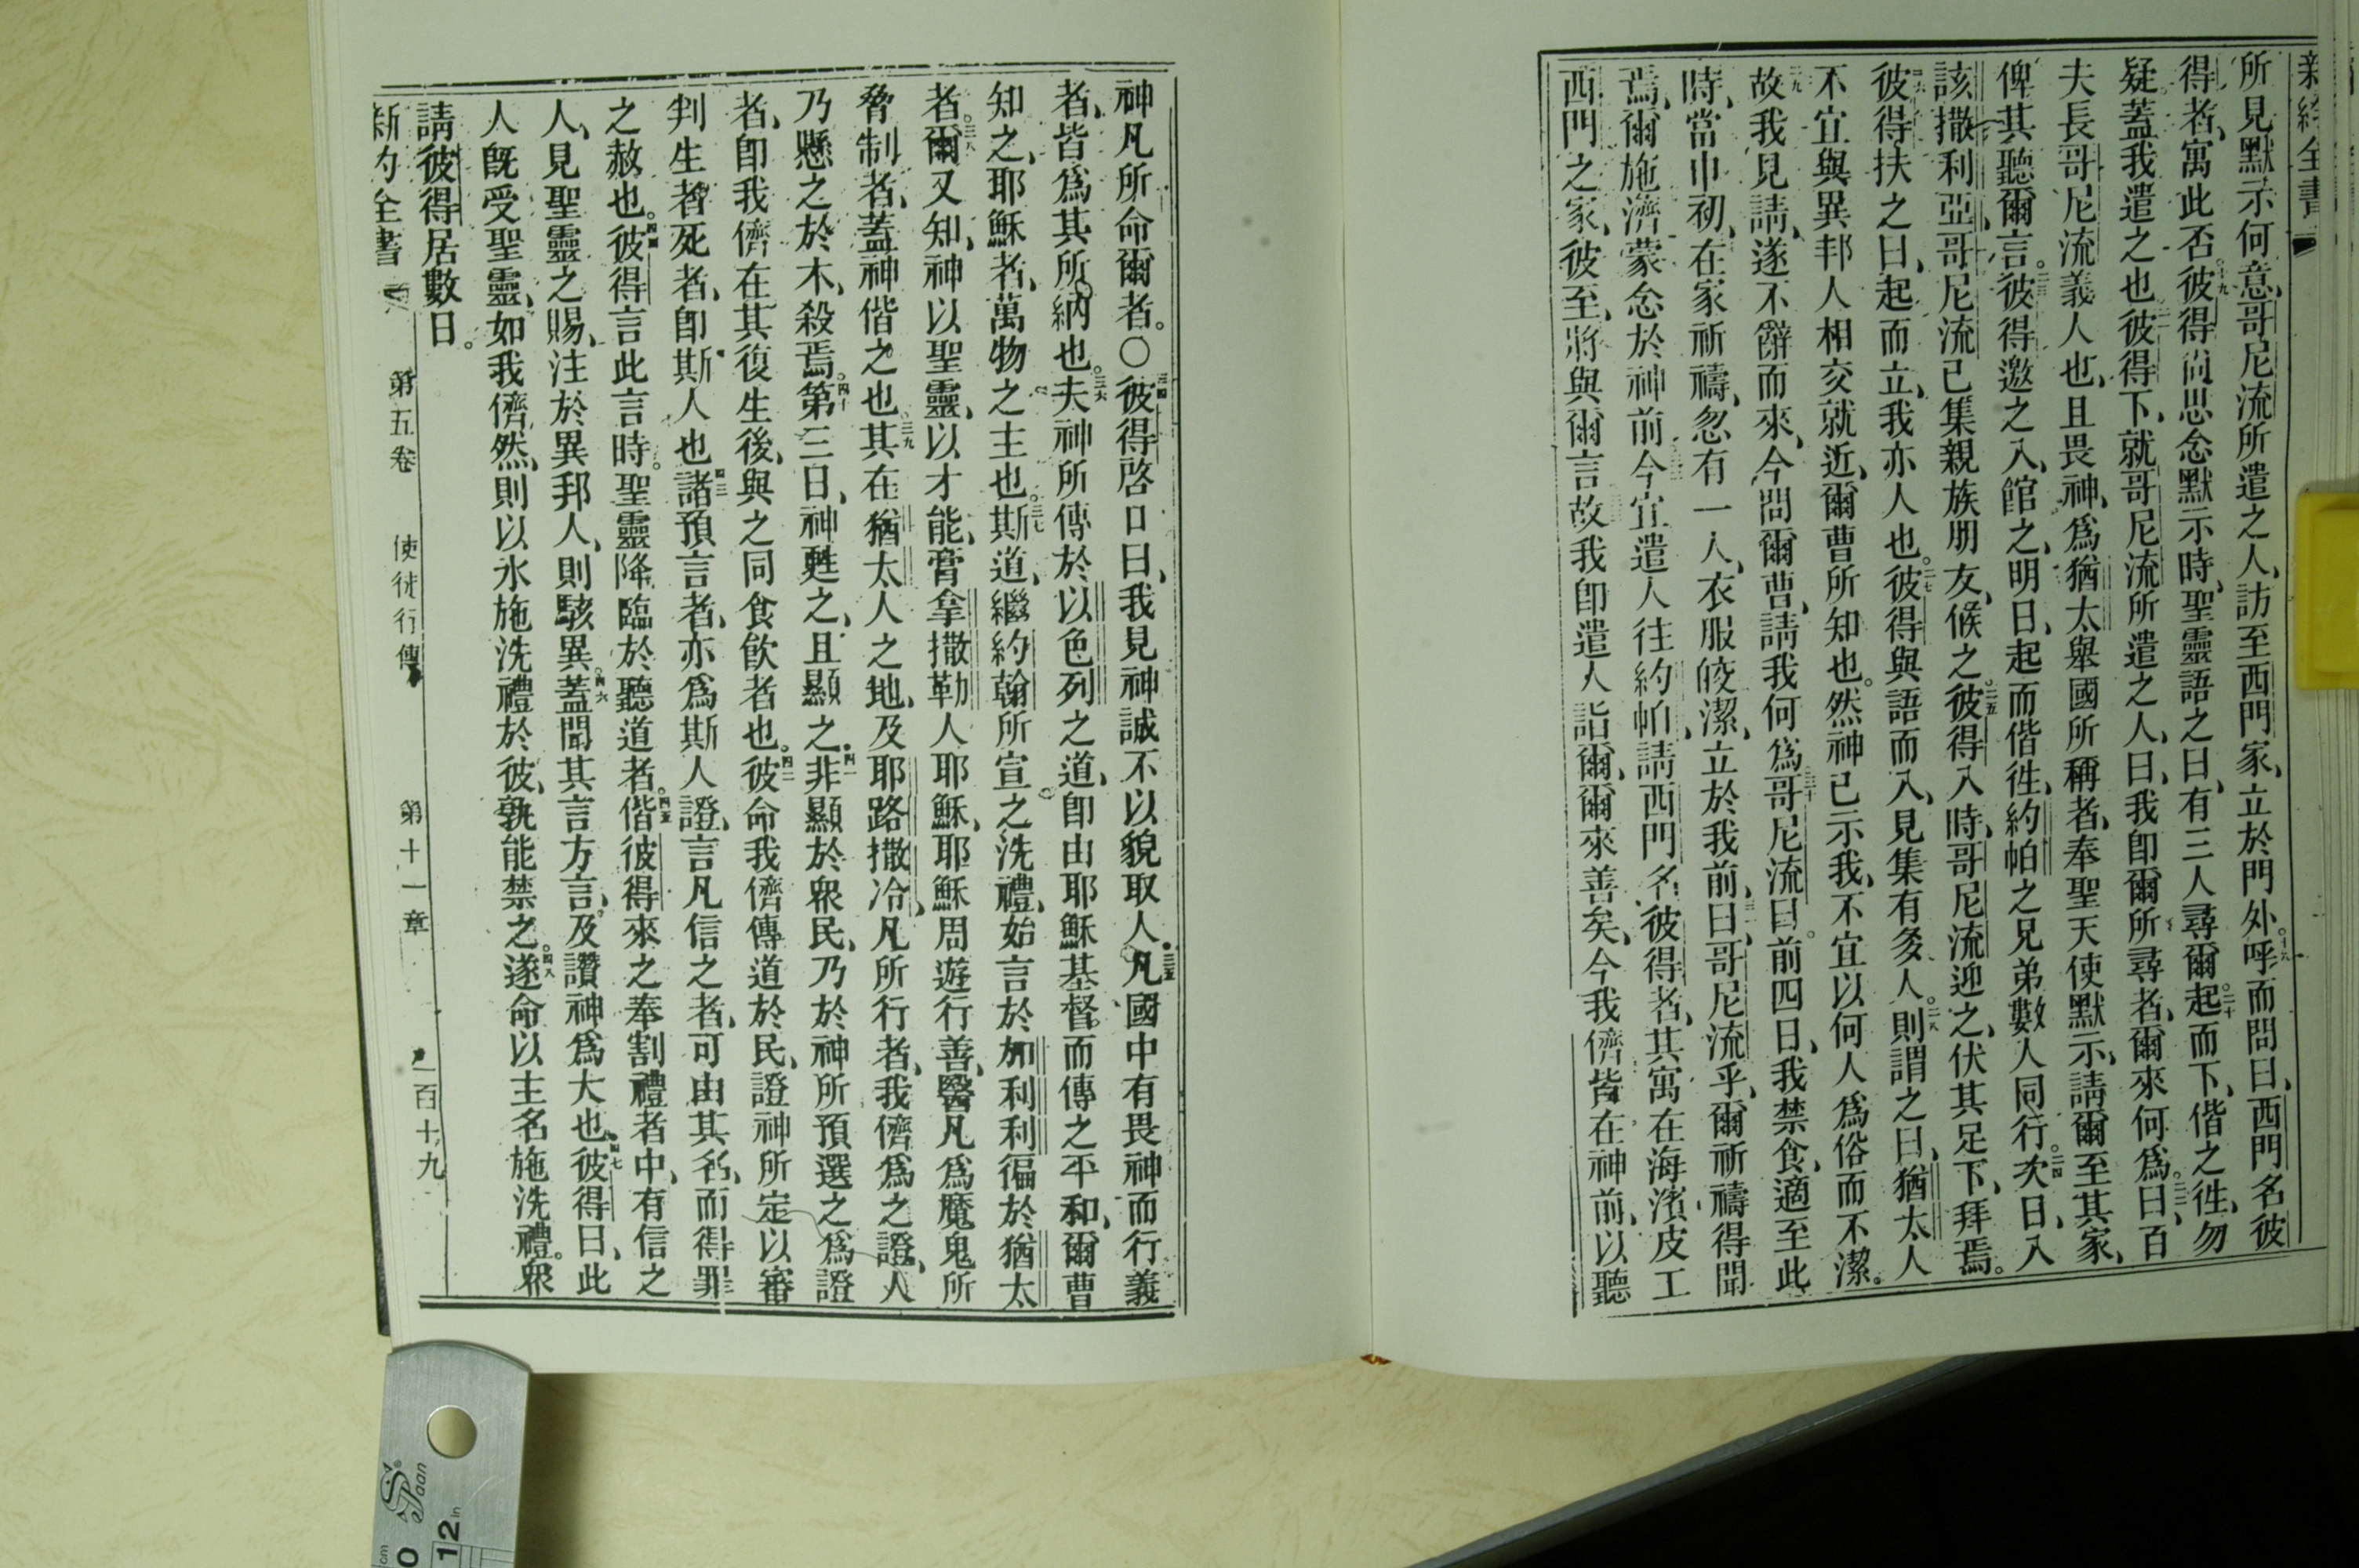 新約全書
所見默示何意、哥尼流所遣之人、訪至西門家、立於門外。十八呼而問曰、西門名彼
得者、寓此否。十九彼得尚思念默示時、聖靈語之曰、有三人尋爾。二十起而下、偕之徃、勿
疑、蓋我遣之也。二一彼得下、就哥尼流所遣之人、曰、我卽爾所尋者、爾來何爲。二二曰、百
夫長哥尼流義人也、且畏神、爲猶太舉國所稱者、奉聖天使默示、請爾至其家、
俾其聽爾言。二三彼得邀之入、館之、明日、起而偕徃、約帕之兄弟數人同行。二四次日、入
該撒利亞、哥尼流已集親族朋友、候之。二五彼得入時、哥尼流迎之、伏其足下、拜焉。
二六彼得扶之曰、起而立、我亦人也。二七彼得與語而入、見集有多人。二八則謂之曰、猶太人
不宜與異邦人相交就近、爾曹所知也。然神已示我、不宜以何人爲俗而不潔。
二九故我見請、遂不辭而來、今問爾曹、請我何爲。三十哥尼流曰。前四日、我禁食、適至此
時、當申初、在家祈禱、忽有一人、衣服皎潔、立於我前、三一曰、哥尼流乎、爾祈禱得聞
焉、爾施濟蒙念於神前、三二今宜遣人往約帕、請西門名彼得者、其寓在海濱皮工
西門之家、彼至、將與爾言、三三故我卽遣人詣爾、爾來善矣、今我儕皆在神前、以聽
神凡所命爾者。〇三四彼得啓口曰、我見神誠不以貌取人。三五凡國中有畏神而行義
者、皆爲其所納也。三六夫神所傳於以色列之道、卽由耶穌基督。而傳之平和、爾曹
知之、耶穌者、萬物之主也。三七斯道、繼約翰所宣之洗禮、始言於加利利徧於猶太
者。三八爾又知、神以聖靈、以才能、膏拿撒勒人耶穌、耶穌周遊行善、醫凡爲魔鬼所
脅制者、蓋神偕之也。三九其在猶太人之地、及耶路撒冷、凡所行者、我儕爲之證、人
乃懸之於木、殺焉。四十第三日、神甦之、且顯之。四一非顯於衆民、乃於神所預選之爲證
者、卽我儕在其復生後、與之同食飮者也。四二彼命我儕傳道於民、證神所定以審
判生者死者、卽斯人也。四三諸預言者、亦爲斯人證、言凡信之者、可由其名、而得罪
之赦也。四四彼得言此言時。聖靈降臨於聽道者。四五偕彼得來之奉割禮者中、有信之
人、見聖靈之賜、注於異邦人、則駭異。四六蓋聞其言方言、及讚神爲大也。四七彼得曰、此
人旣受聖靈、如我儕然、則以水施洗禮於彼、孰能禁之。四八遂命以主名施洗禮。衆
請彼得居數日。
新約全書 第五卷 使徒行傳 第十一章 一百十九
Spaan
cm
0
12 in